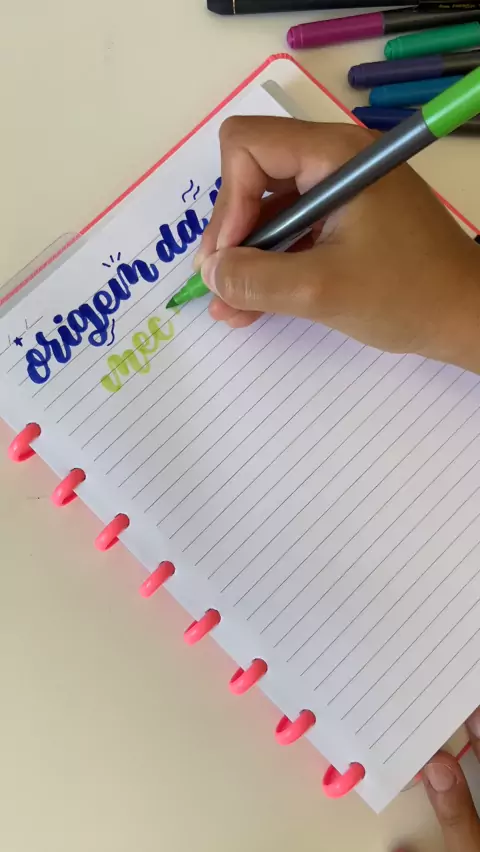 origem da
mec